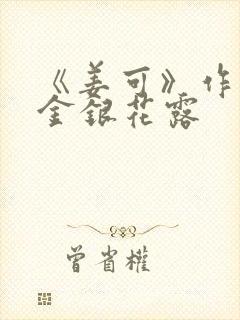 《姜可》作
金银花露
曾省權